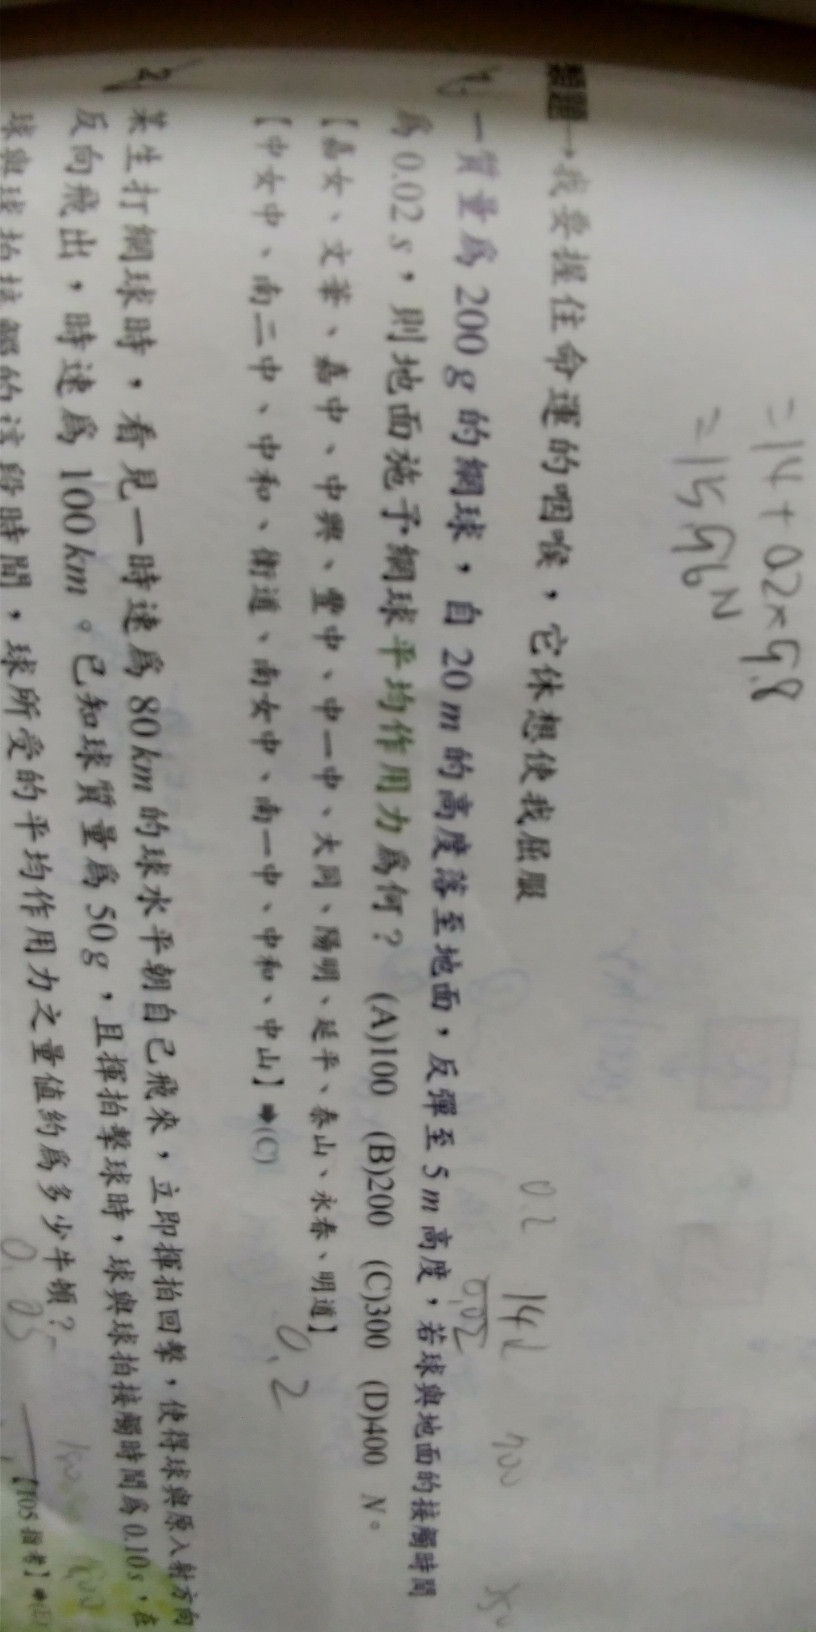 =14+0.2×9.8
=15.96N
類題→我要握住命運的咽喉，它休想使我屈服
1. 一質量為 200 g 的網球，自 20 m 的高度落至地面，反彈至 5 m 高度，若球與地面的接觸時間
為 0.02 s，則地面施予網球平均作用力為何？ (A)100 (B)200 (C)300 (D)400 N。
【嘉女、文華、嘉中、中興、豐中、中一中、大同、陽明、延平、泰山、永春、明道】
【中女中、南二中、中和、衛道、南女中、南一中、中和、中山】➡(C)
0.2
0.02
0.2
2. 某生打網球時，看見一時速為 80 km 的球水平朝自己飛來，立即揮拍回擊，使得球與原入射方向
反向飛出，時速為 100 km。已知球質量為 50 g，且揮拍擊球時，球與球拍接觸時間為 0.10 s，在
球與球拍接觸的這段時間，球所受的平均作用力之量值約為多少牛頓？【105 指考】
0.05